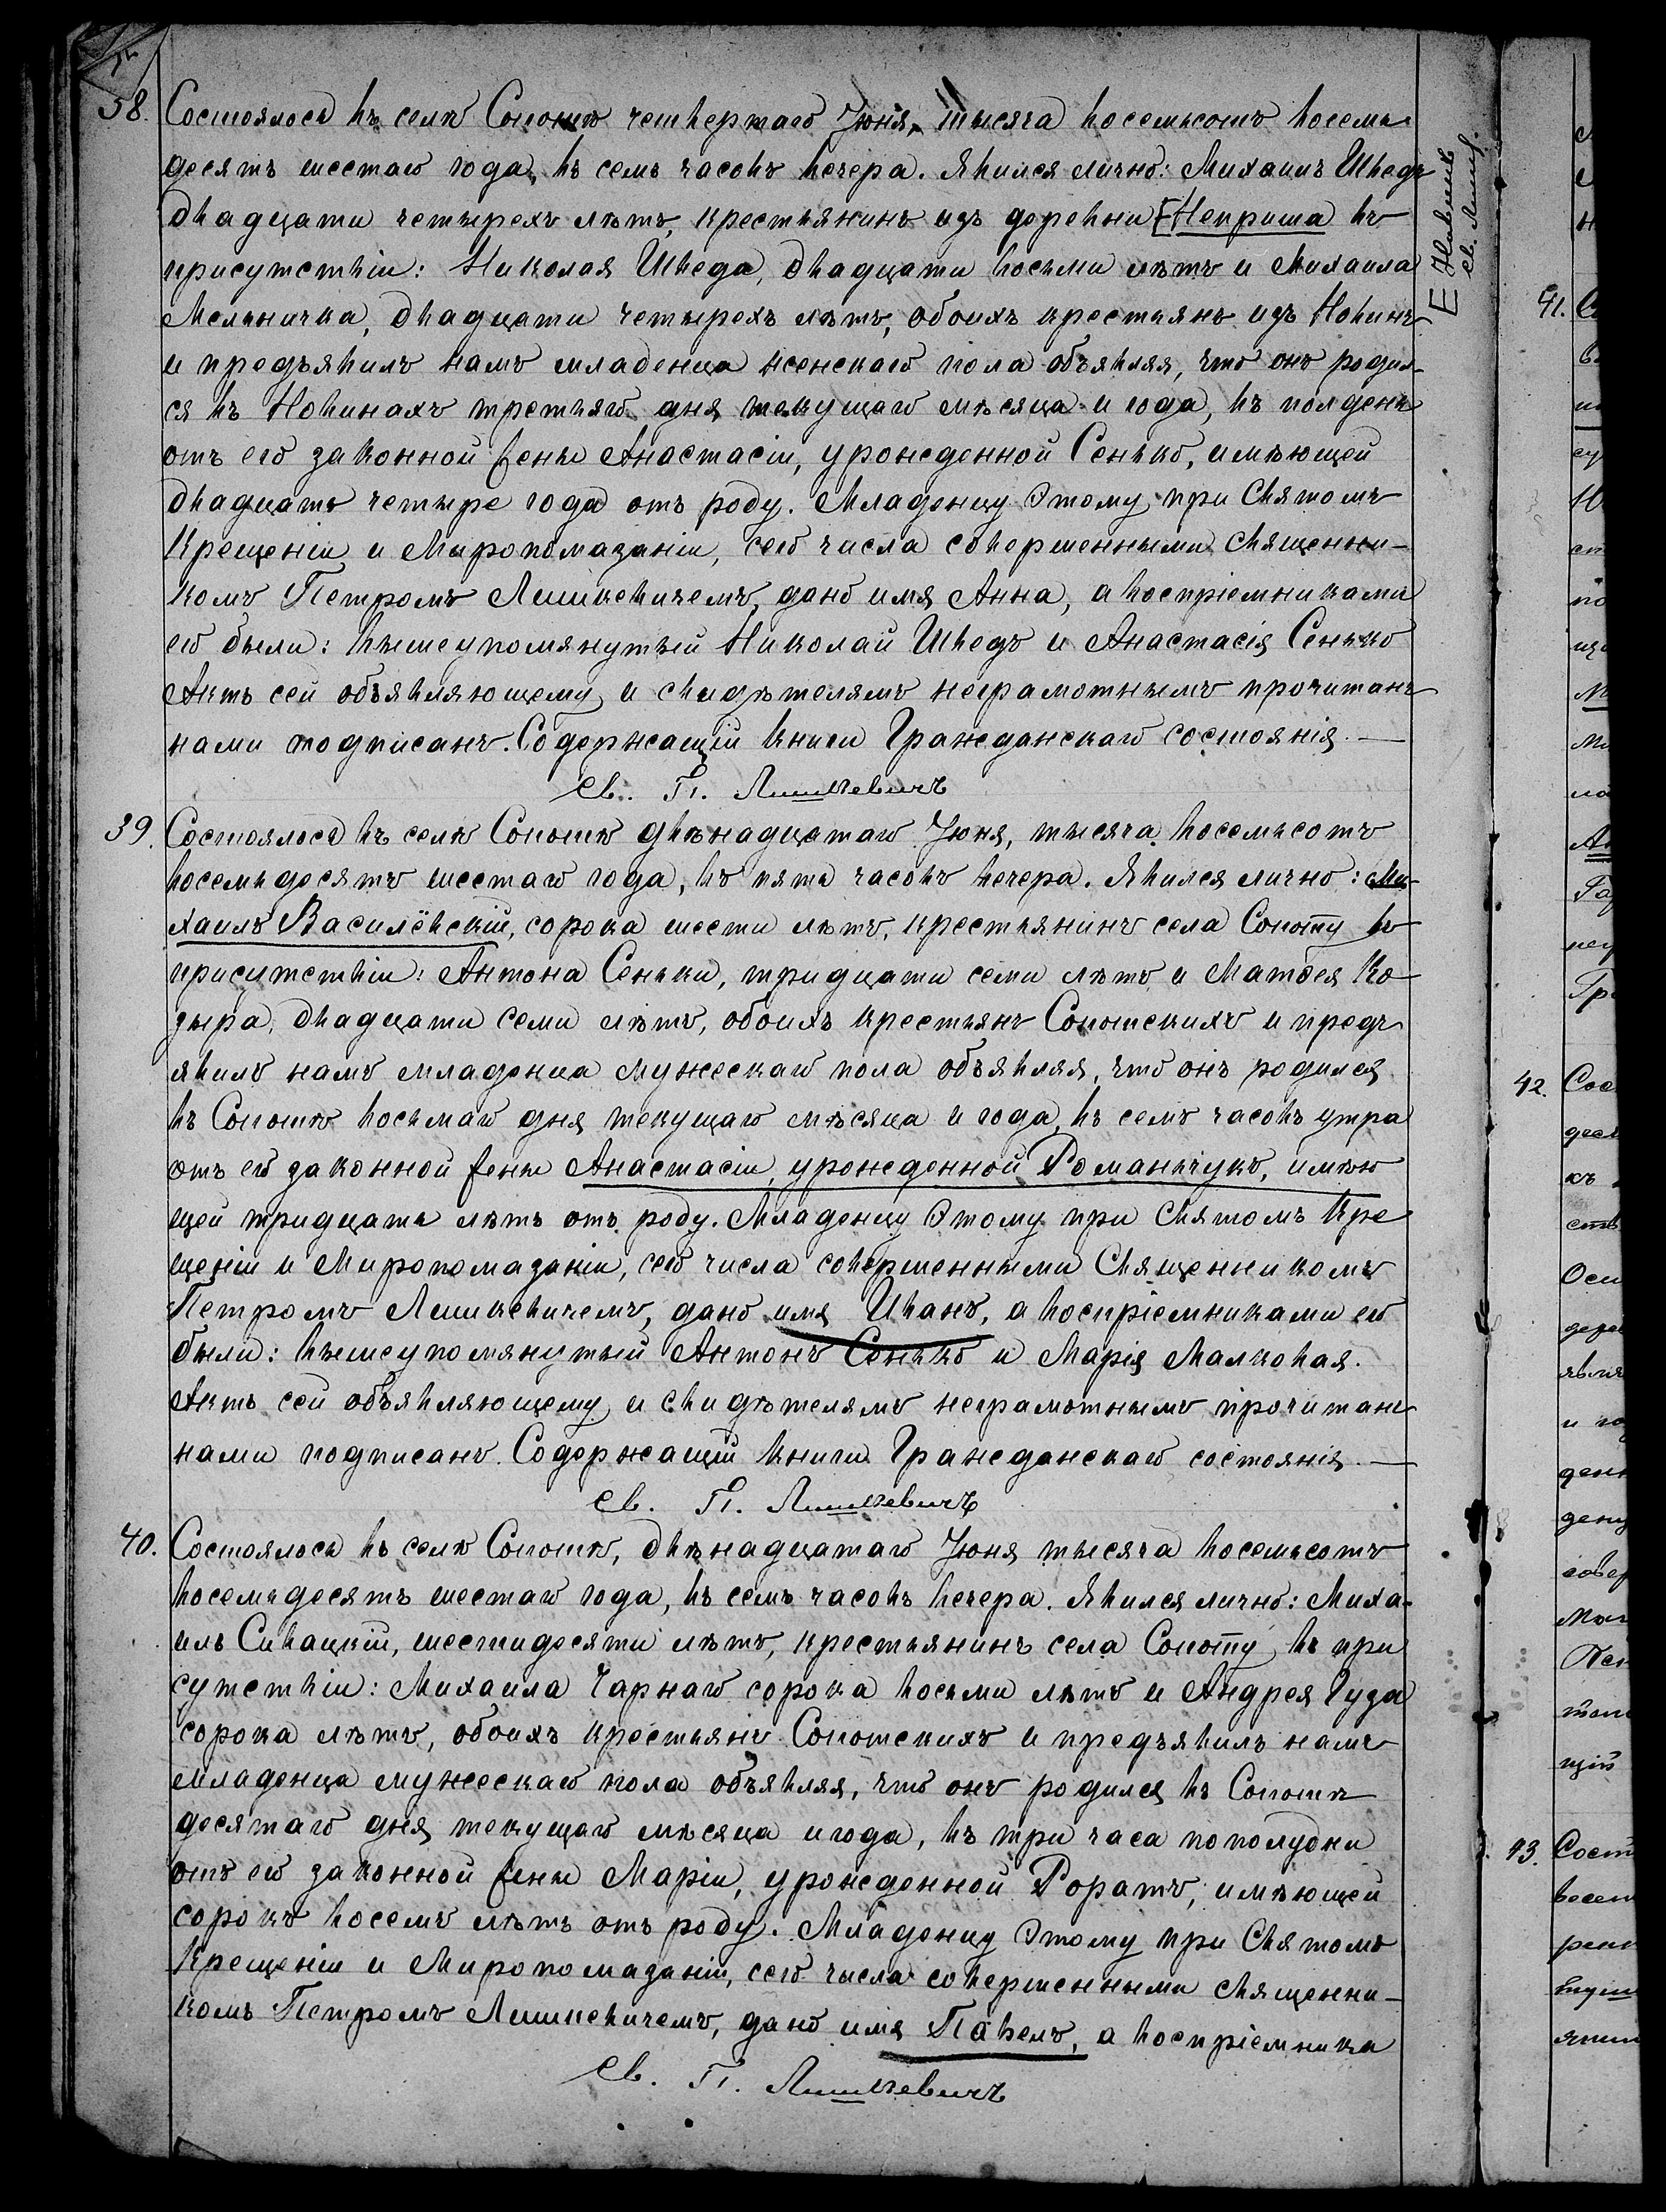 38. Состоялось въ селѣ Сопотѣ четвертаго Іюня, тысяча восемьсотъ восемь-
десятъ шестаго года, въ семь часовъ вечера. Явился лично: Михаилъ Шведъ
двадцати четырехъ лѣтъ, крестьянинъ изъ деревни [Неприша въ
присутствіи: Николая Шведа, двадцати восьми лѣтъ и Михаила
Мельничка, двадцати четырехъ лѣтъ, обоихъ крестьянъ изъ Новинъ
и предъявилъ намъ младенца женскаго пола объявляя, что онъ родил-
ся въ Новинахъ третьяго дня текущаго мѣсяца и года, въ полдень
отъ его законной жены Анастасіи, урожденной Сенько, имѣющей
двадцать четыре года отъ роду. Младенцу этому при Святомъ
Крещеніи и Миропомазаніи, сего числа совершенными Священни-
комъ Петромъ Лишкевичемъ, дано имя Анна, а воспріемниками
его были: вышеупомянутый Николай Шведъ и Анастасія Сенько
Актъ сей объявляющему и свидѣтелямъ неграмотнымъ прочитанъ
нами подписанъ. Содержащій книги Гражданскаго состоянія. —
Св. П. Лишкевичъ
[ Новинъ
Св. Лишк.
39. Состоялось въ селѣ Сопотѣ двѣнадцатаго Іюня, тысяча восемьсотъ
восемьдесятъ шестаго года, въ пять часовъ вечера. Явился лично: Ми-
хаилъ Василёвскій, сорока шести лѣтъ, крестьянинъ села Сопоту въ
присутствіи: Антона Сеньки, тридцати семи лѣтъ и Матѳея Ко-
зыра, двадцати семи лѣтъ, обоихъ крестьянъ Сопотскихъ и предъ
явилъ намъ младенца мужескаго пола объявляя, что онъ родился
въ Сопотѣ восьмаго дня текущаго мѣсяца и года, въ семь часовъ утра
отъ его законной жены Анастасіи, урожденной Романчукъ, имѣю
щей тридцать лѣтъ отъ роду. Младенцу этому при Святомъ Кре
щеніи и Миропомазаніи, сего числа совершенными Священникомъ
Петромъ Лишкевичемъ, дано имя Иванъ, а воспріемниками его
были: вышеупомянутый Антонъ Сенько и Марія Малковая.
Актъ сей объявляющему и свидѣтелямъ неграмотнымъ прочитанъ
нами подписанъ. Содержащій книги Гражданскаго состоянія. —
Св. П. Лишкевичъ
40. Состоялось въ селѣ Сопотѣ, двѣнадцатаго Іюня тысяча восемьсотъ
восемьдесятъ шестаго года, въ семь часовъ вечера. Явился лично: Миха-
илъ Сивацкій, шестидесяти лѣтъ, крестьянинъ села Сопоту, въ при
сутствіи: Михаила Чарнаго сорока восьми лѣтъ и Андрея Гуза
сорока лѣтъ, обоихъ крестьянъ Сопотскихъ и предъявилъ намъ
младенца мужескаго пола объявляя, что онъ родился въ Сопотѣ
десятаго дня текущаго мѣсяца и года, въ три часа пополудни
отъ его законной жены Маріи, урожденной Роратъ, имѣющей
сорокъ восемь лѣтъ отъ роду. Младенцу этому при Святомъ
Крещеніи и Миропомазаніи, сего числа совершенными Священни-
комъ Петромъ Лишкевичемъ, дано имя Павелъ, а воспріемника
Св. П. Лишкевичъ
41.
42. Сос
43. Сост